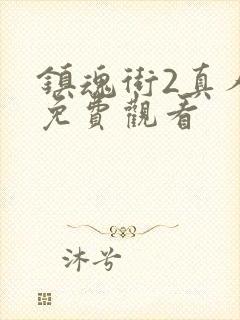 鎮魂街2真人
免費觀看
沐兮